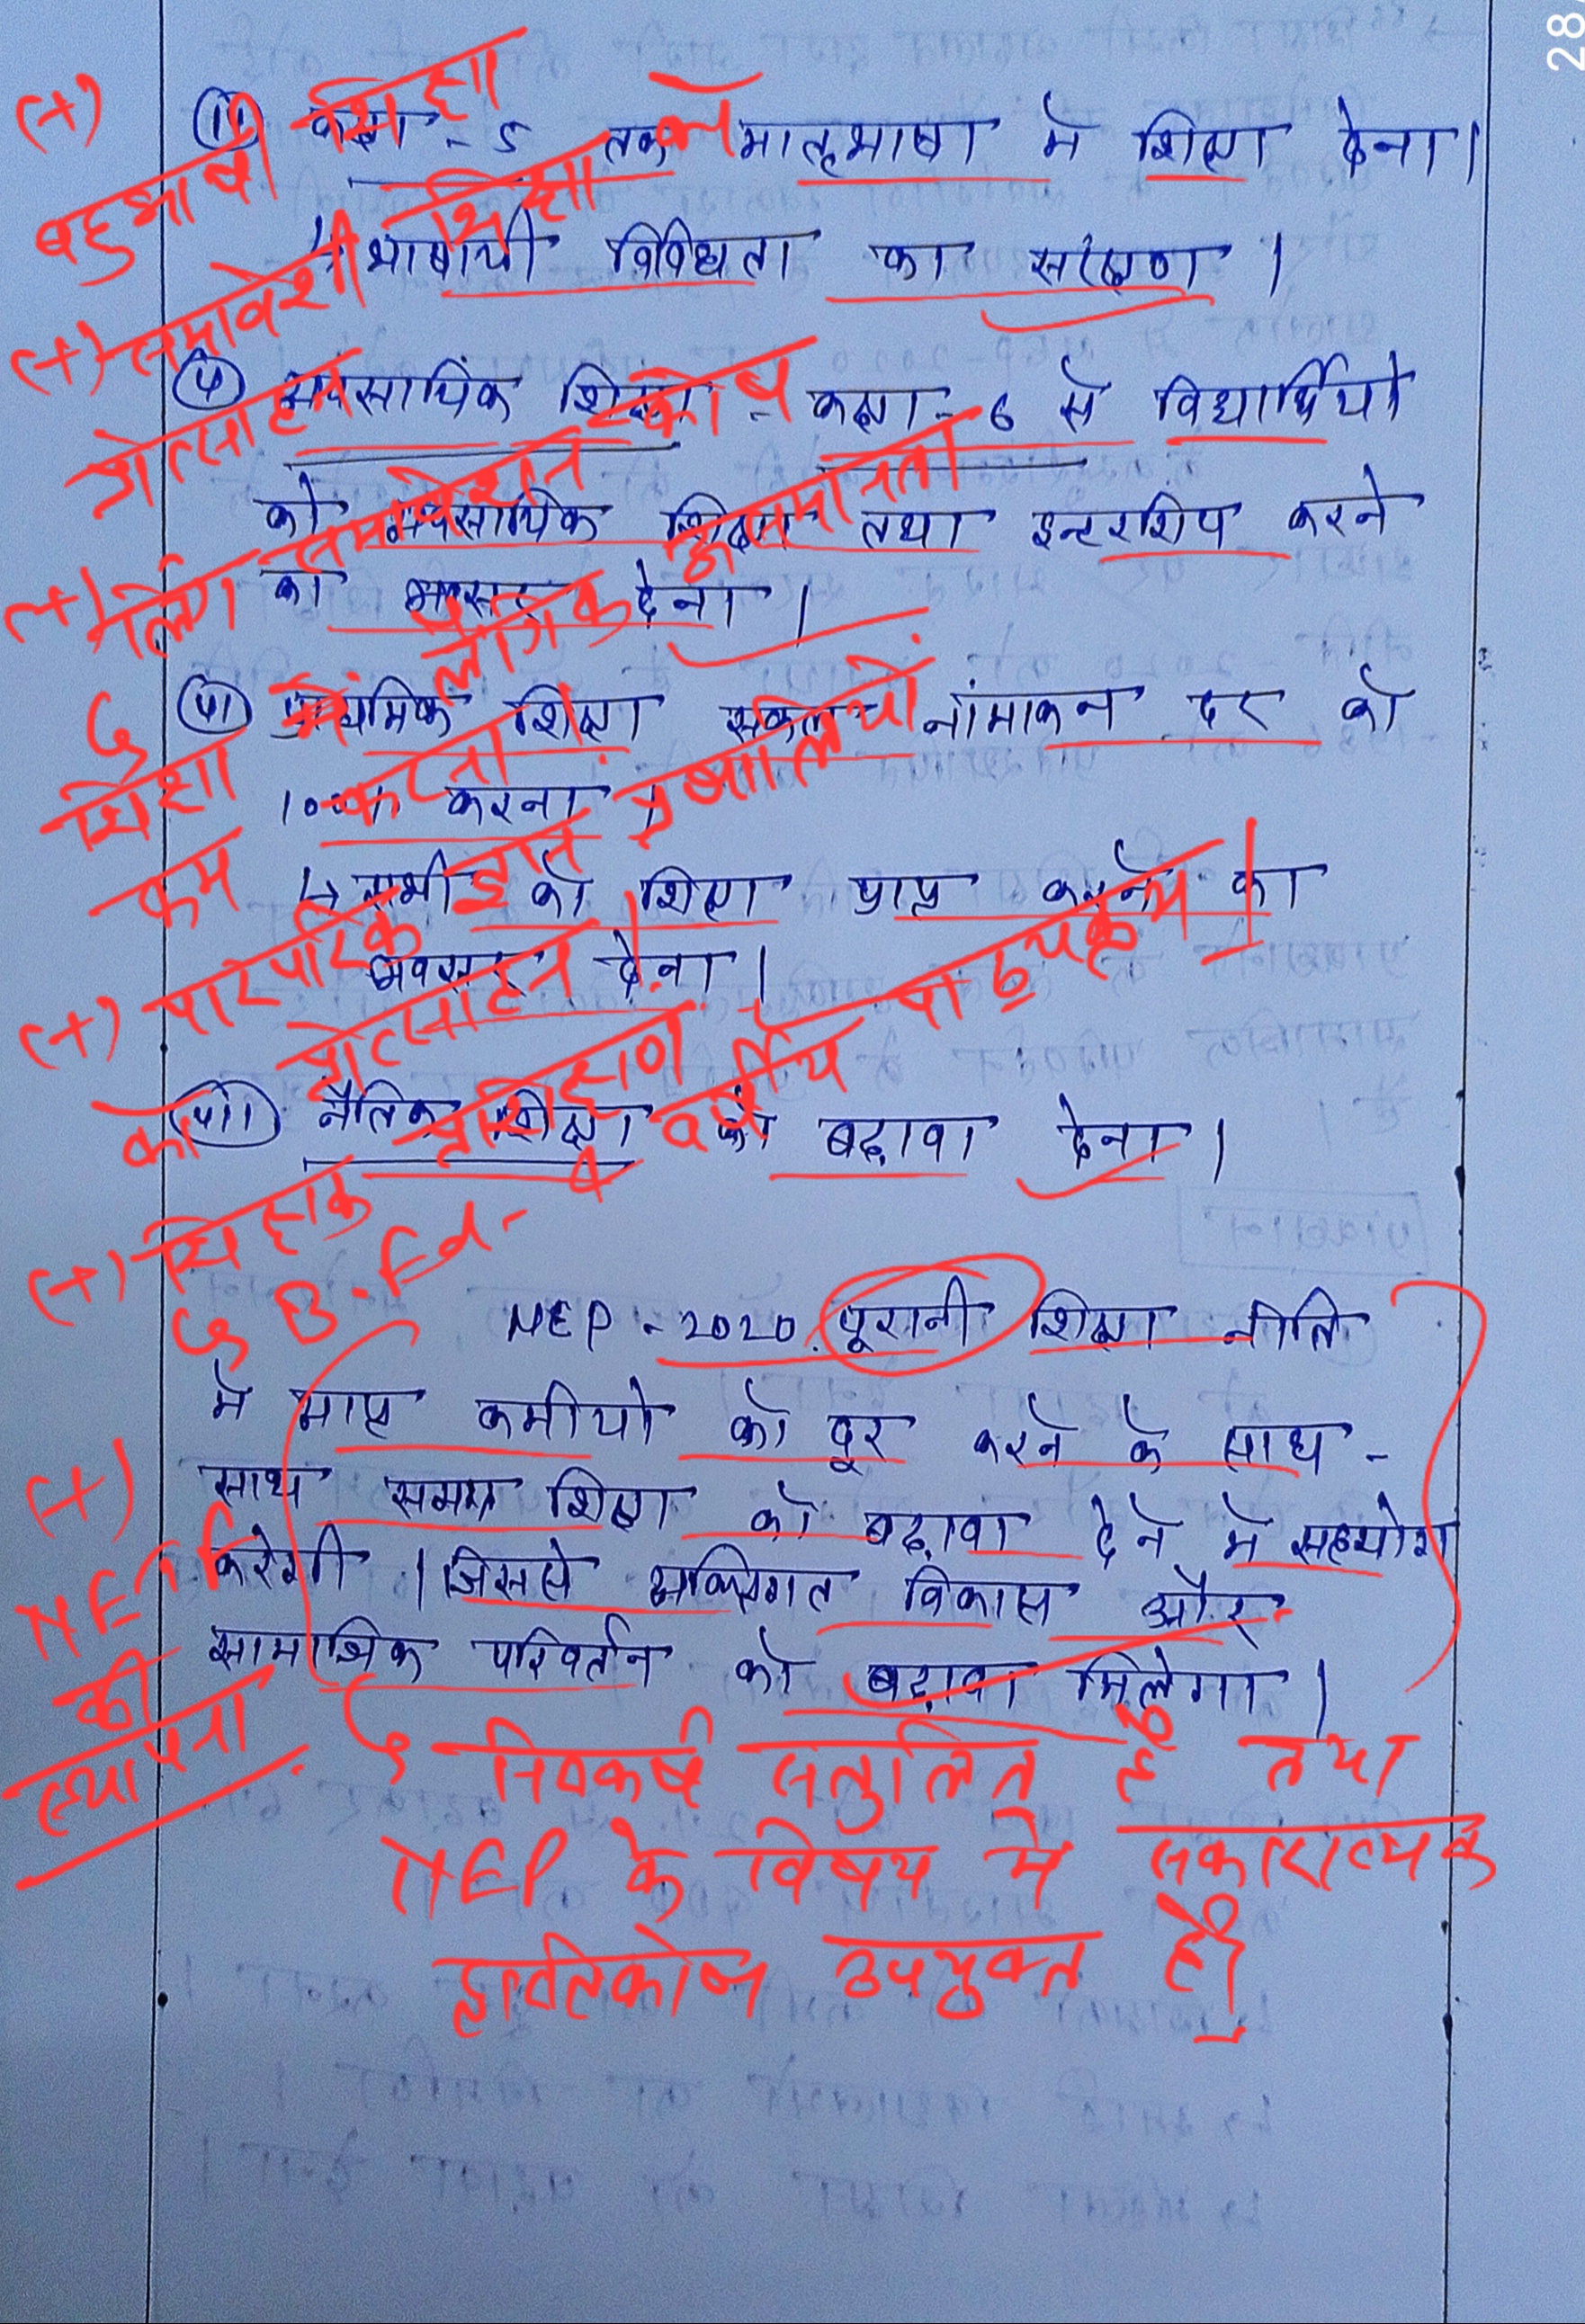 28
(iv) कक्षा - 5 तक मातृभाषा में शिक्षा देना।
↳ भाषायी विविधता का संरक्षण।
(v) व्यवसायिक शिक्षा - कक्षा - 6 से विद्यार्थियो
को व्यवसायिक शिक्षा तथा इन्टरशिप करने
का अवसर देना।
(vi) माध्यमिक शिक्षा सकल नांमाकन दर को
100% करना।
↳ सभी को शिक्षा प्राप्त करने का
अवसर देना।
(vii) नैतिक शिक्षा को बढ़ावा देना।
NEP - 2020 पूरानी शिक्षा नीति
मे व्याप्त कमीयो को दूर करने के साथ -
साथ समग्र शिक्षा को बढ़ावा देने मे सहयोग
करेगी। जिससे व्यक्तिगत विकास और
सामाजिक परिवर्तन को बढ़ावा मिलेगा।
(+) बहुभाषी शिक्षा
(+) समावेशी शिक्षा को
प्रोत्साहन
(+) लिंग समावेशन कोष
↳ शिक्षा में लैंगिक असमानता
कम करना
(+) पारंपरिक ज्ञान प्रणालियों
को प्रोत्साहन
(+) शिक्षक प्रशिक्षण
↳ B.Ed - 4 वर्षीय पाठ्यक्रम।
(+) NETF
की
स्थापना
↳ निष्कर्ष संतुलित है तथा
NEP के विषय में सकारात्मक
दृष्टिकोण उपयुक्त है।